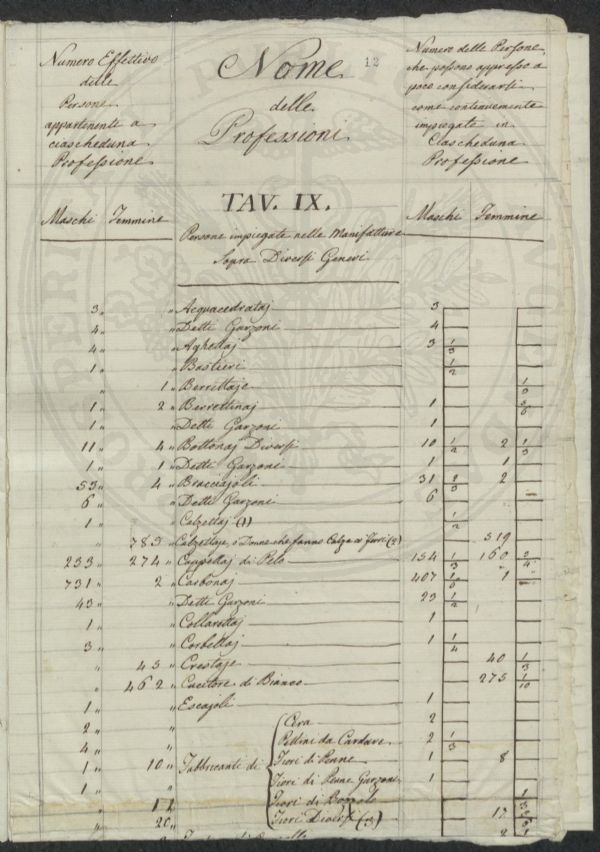 Numero Effettivo
delle
Persone
appartenente a
ciascheduna
Professione
Nome
12
delle
Professioni
Numero delle Persone
che possono appresso a
poco considerarsi
come continuamente
impiegate in
Ciascheduna
Professione
Maschi Femmine
TAV. IX.
Persone impiegate nelle Manifatture
Sopra Diversi Generi
Maschi Femmine
3 „ „ Acquacedrataj 3
4 „ „ Detti Garzoni 4
4 „ „ Aghettaj 3 1/3
1 „ „ Bastieri 1/2
„ 1 „ Berrettaje
1 „ 2 „ Berrettinaj 1
1 „ „ Detti Garzoni 1
11 „ 4 „ Bottonaj Diversi 10 1/2 2 1/3
1 „ 1 „ Detti Garzoni 1 1
53 „ 4 „ Bracciajoli 31 2/3 2
6 „ „ Detti Garzoni 6
1 „ „ Calzettaj (1) 1/2
„ 783 „ Calzettaje, o Donne che fanno Calze a ferri (2) 519
233 „ 274 „ Cappellaj di Pelo 154 1/3 160 3/4
731 „ 2 „ Carbonaj 407 1/6 1
43 „ „ Detti Garzoni 23 1/2
1 „ „ Collarettaj 1
3 „ „ Corbellaj 1 1/4
„ 45 „ Crestaje 40 1/3
„ 462 „ Cucitore di Bianco 275 1/10
1 „ „ Escajoli 1
Fabbricanti di
2 „ „ Cera 2
4 „ „ Pettini da Cardare 2 1/3
1 „ 10 „ Fiori di Penne 1 8
1 „ „ Fiori di Penne Garzoni 1
„ 11 Fiori di Bozzolo
„ 20 „ Fiori Diversi 13